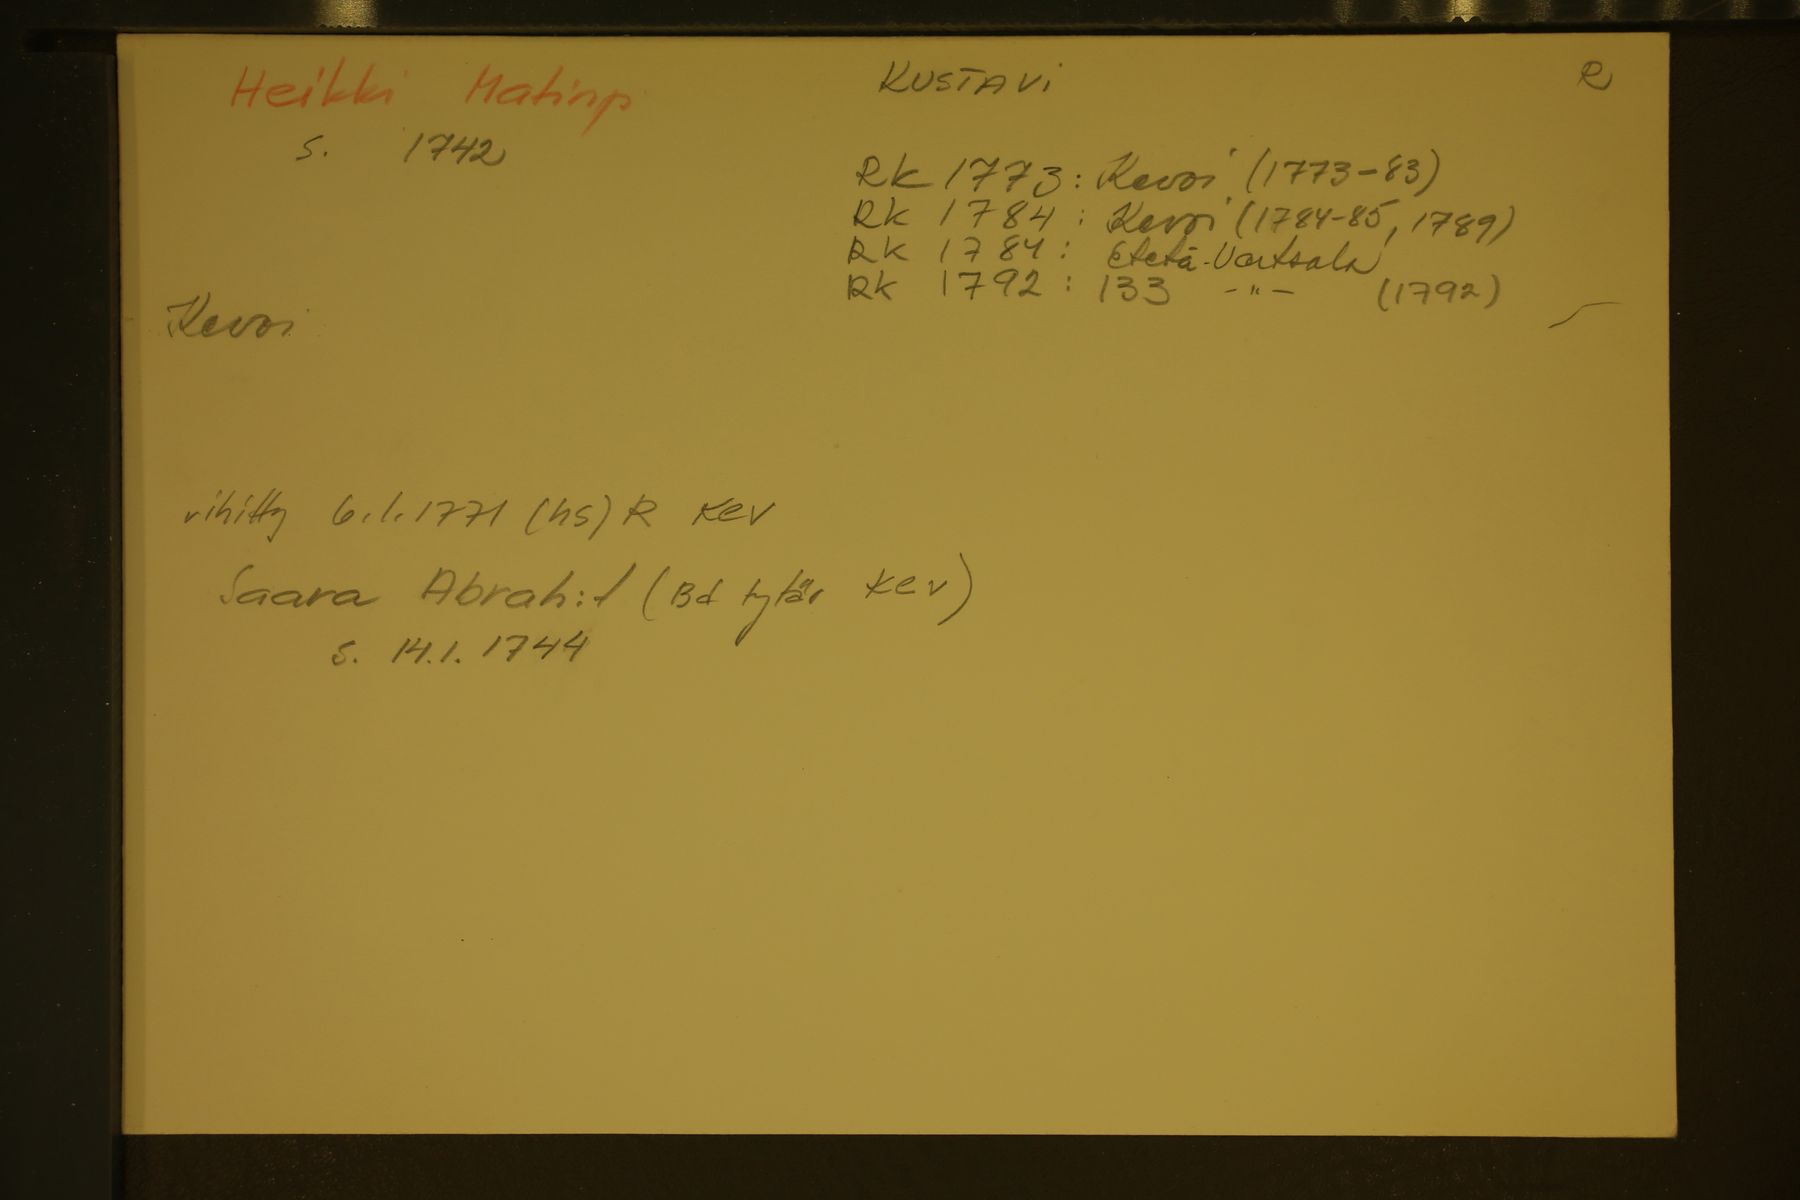 Heikki Matinp
s. 1742
KUSTAVI
R
Rk 1773: Kevoi (1773-83)
Rk 1784: Kevoi (1784-85, 1789)
Rk 1784: Etelä-Vartsala
Rk 1792: 133 -"- (1792)
Kevoi
vihitty 6.1.1771 (hs) R Kev
Saara Abrah:t (Bd tytär Kev)
s. 14.1.1744